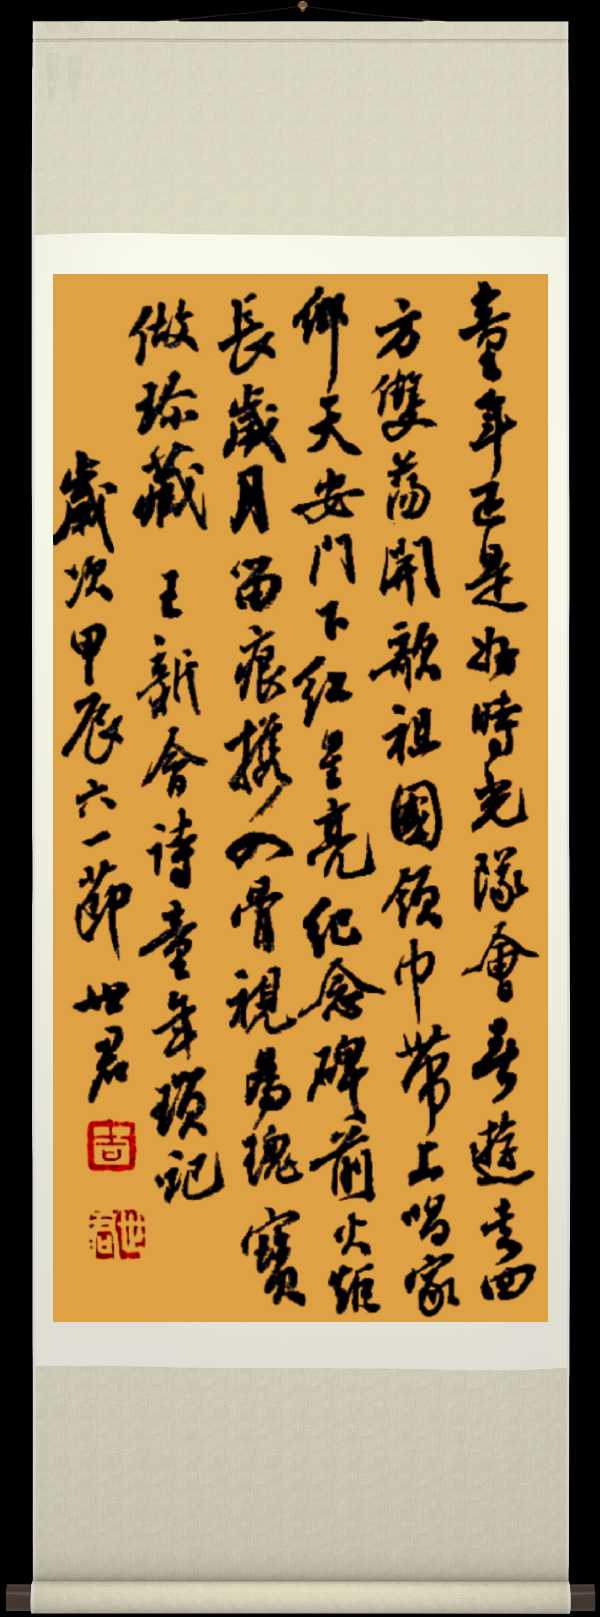 童年正是好時光隊會春遊走四
方雙蕩開歌祖國領巾帶上唱家
鄉天安門下紅星亮紀念碑前火炬
長歲月留痕攜入骨視為瑰寶
做珍藏 王新會詩童年瑣記
歲次甲辰六一節 世君
吉
世君